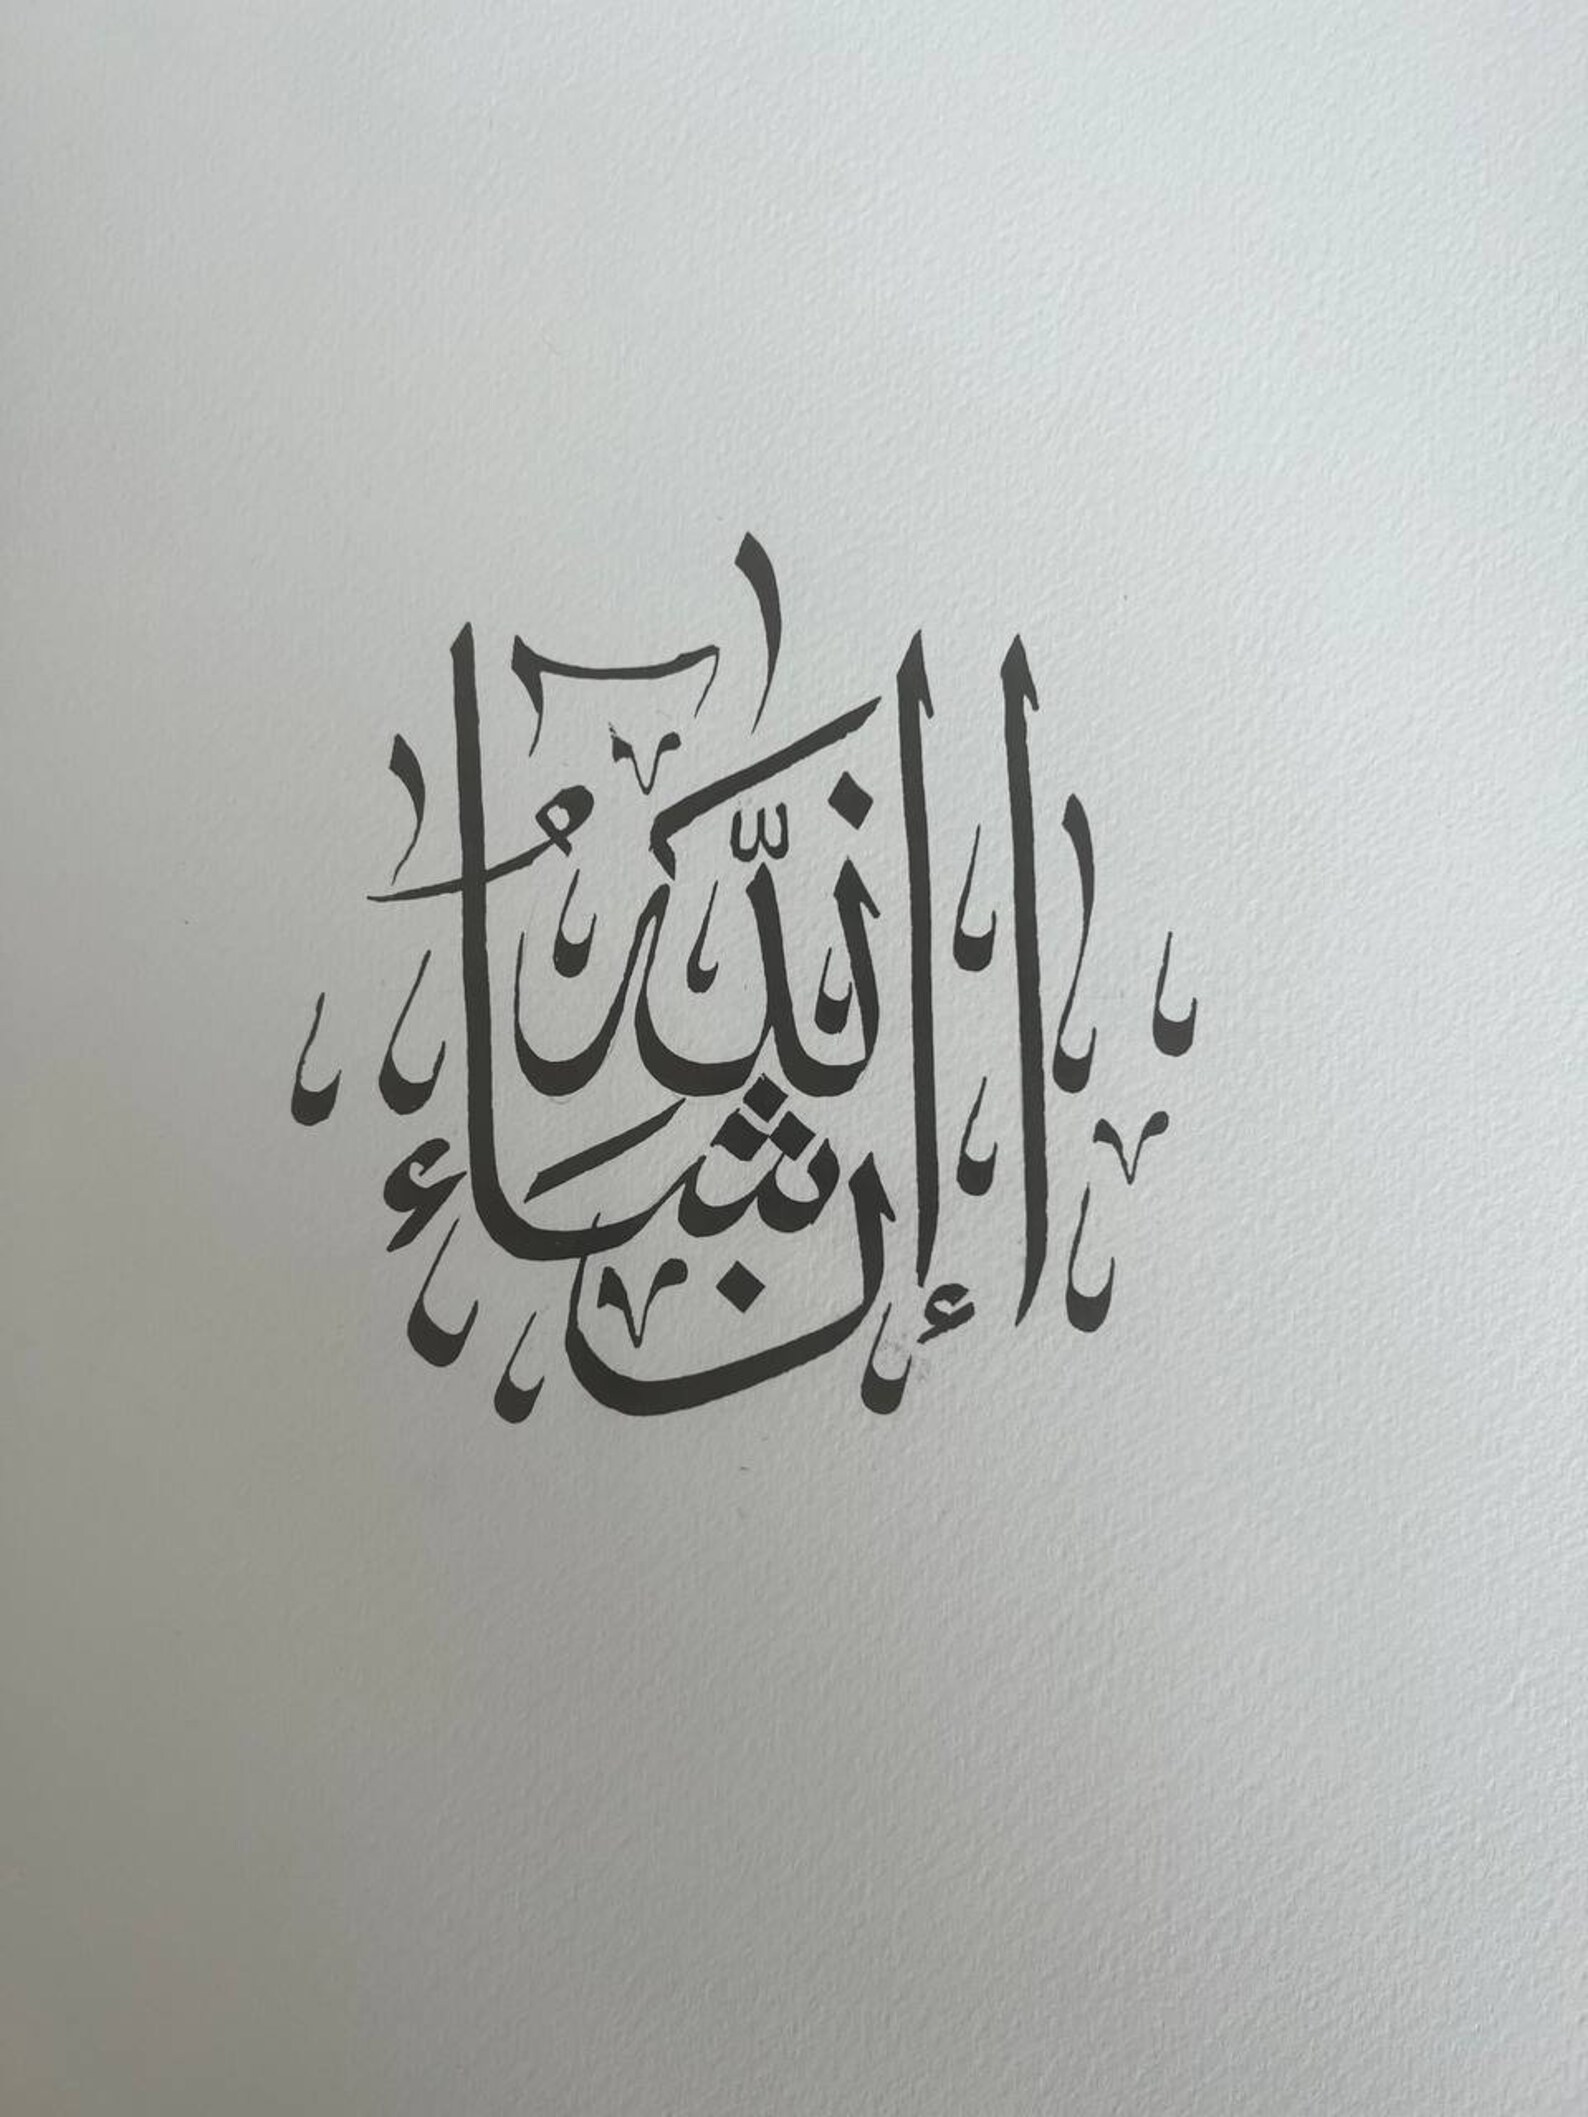 إن شاء اللهُ